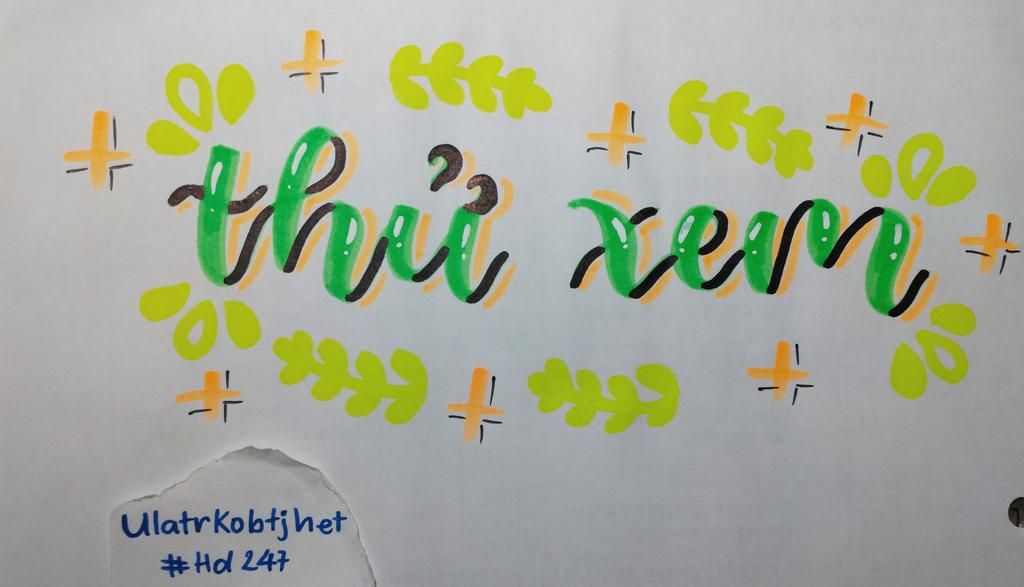 thử xem
UlatrKobtjhet
#Hd 247